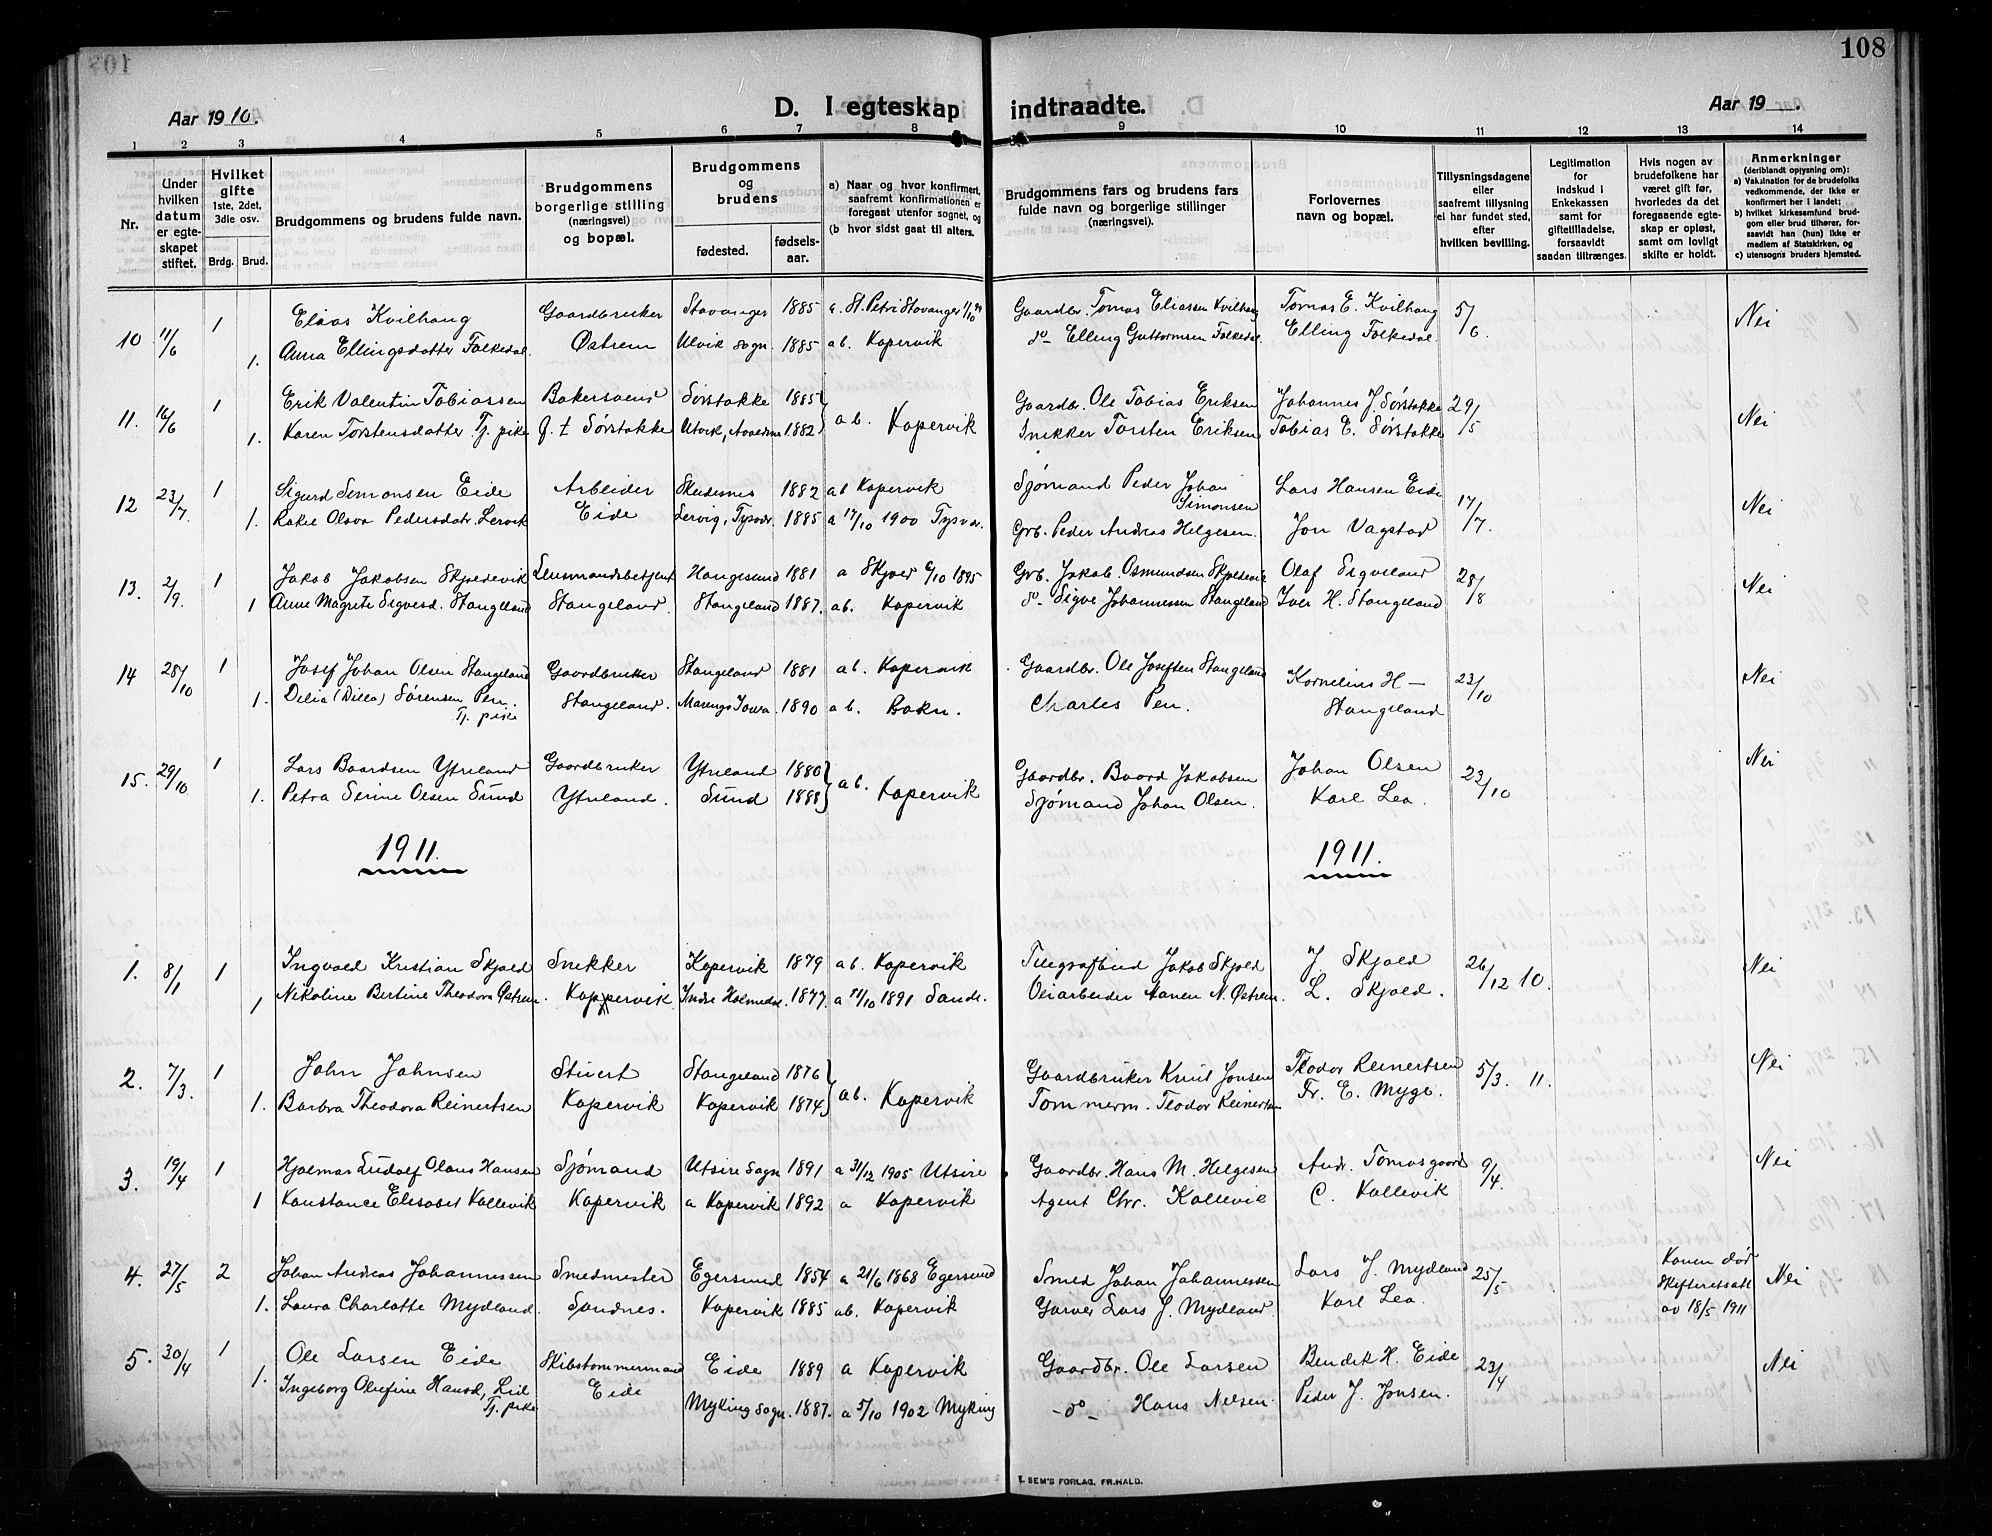 108
Aar 1910.
D. I egteskap indtraadte.
Aar 19
1 2 3 4 5 6 7 8 9 10 11 12 13 14
Nr.
Under hvilken datum er egteskapet stiftet.
Hvilket gifte 1ste, 2det, 3die osv.
Brdg. Brud.
Brudgommens og brudens fulde navn.
Brudgommens borgerlige stilling (næringsvei) og bopæl.
Brudgommens og brudens
fødested.
fødselsaar.
a) Naar og hvor konfirmert, saafremt konfirmationen er foregaat utenfor sognet, og
(b hvor sidst gaat til alters.
Brudgommens fars og brudens fars fulde navn og borgerlige stillinger (næringsvei).
Forlovernes navn og bopæl.
Tillysningsdagene eller saafremt tillysning ei har fundet sted, efter hvilken bevilling.
Legitimation for indskud i Enkekassen samt for giftetilladelse, forsaavidt saadan tiltrænges.
Hvis nogen av brudefolkene har været gift før, hvorledes da det foregaaende egteskap er opløst, samt om lovligt skifte er holdt.
Anmerkninger (deriblandt oplysning om):
a) Vaksination for de brudefolks vedkommende, der ikke er konfirmert her i landet;
b) hvilket kirkesamfund brudgom eller brud tilhører, forsaavidt han (hun) ikke er medlem af Statskirken, og
c) utensogns bruders hjemsted.
10 11/6 1 Elias Kvilhaug Gaardbruker Stavanger 1885 a. St. Petri Stavanger Gaardbr. Tomas Eliassen Kvilhaug Tomas E. Kvilhaug 5/6. Nei
1. Anna Ellingsdatter Folkedal. Østrem Ulvik sogn. 1885 ab. Kopervik do Elling Guttormsen Folkedal. Elling Folkedal
11. 16/6 1 Erik Valentin Tobiassen Bakersvend Sørstokke 1885 ab. Kopervik Gaardbr. Ole Tobias Eriksen Johannes J. Sørstokke 29/5 Nei
1. Karen Torstensdatter Tj. pike Sørstokke 1882 Snekker Torsten Eriksen Tobias E. Sørstokke
12 23/7. 1 Sigurd Simonsen Eide Arbeider Skudesnes 1882 ab Kopervik Sjømand Peder Johan Simonsen Lars Hansen Eide 17/7. Nei
1. Olava Pedersdatr. Lervik Eide Lervig, Tysvær. 1885 a 17/10 1900 Tysvær. Grb. Peder Andreas Helgesen. Jon Vagstad
13. 2/9. 1 Jakob Jakobsen Skjoldevik Lensmandsbetjent Haugesund 1881 a Skjold 6/10 1895 Grb. Jakob Osmundsen Skjoldevik Olaf Sigveland 28/8 Nei
1 Anne Magrete Sigvesd. Stangeland Stangeland. Stangeland 1887. ab. Kopervik do. Sigve Johannessen Stangeland Iver H. Stangeland
14 28/10 1 Josef Johan Olsen Stangeland Gaardbruker Stangeland 1881 ab. Kopervik Gaardbr. Ole Josefsen Stangeland Kornelius H – Stangeland 23/10 Nei
1. Delia (Dilla) Sørensen Pen. Tj. pike Stangeland. Iowa. 1890 ab. Bokn. Charles Pen.
15. 29/10 1 Lars Baardsen Ytreland Gaardbruker Ytreland 1880 ab. Kopervik Gaardbr. Baard Jakobsen Johan Olsen 23/10 Nei
1. Petra Serine Olsen Sund Ytreland. Sund 1888 Sjømand Johan Olsen. Karl Lea.
1911. 1911.
1. 8/1 1 Ingvald Kristian Skjold Snekker Kopervik 1879 ab. Kopervik Telegrafbud Jakob Skjold J Skjold 26/12 10. Nei
1 Nikoline Bertine Theodora Østrem. Kopervik Indre Holmedal. 1877. 1891 Sande. Veiarbeider N. Østrem. L. Skjold.
2. 7/3. 1 John Johnsen Stuert Stangeland 1876 ab. Kopervik Gaardbruker Knut Jonsen Teodor Reinertsen 5/3. 11. Nei
1. Barbra Theodora Reinertsen Kopervik Kopervik 1874 Tømmerm. Teodor Reinertsen Fr. E. Myge.
3. 19/4 1 Hjalmar Ludolf Olaus Hansen Sjømand Utsire Sogn 1891 a 31/12 1905 Utsire Gaardbr. Hans M. Helgesen Andr. Tomasgaard 9/4. Nei
1 Konstance Elisabet Kallevik Kopervik Kopervik 1892 a Kopervik Agent Chr. Kallevik C. Kallevik
4. 27/5 2 Johan Andreas Johannessen Smedmester Egersund 1854 a 21/6 1868 Egersund Smed Johan Johannessen Lars J. Mydland 25/5 Konen død Skifteretsatt. av 18/5 1911 Nei
1. Laura Charlotte Mydland. Sandnes. Kopervik 1885 ab. Kopervik Garver Lars J. Mydland Karl Lea.
5. 30/4 1 Ole Larsen Eide Skibstømmermand Eide 1889 a Kopervik Gaardbr. Ole Larsen Bendik H. Eide 23/4 Nei
1. Ingeborg Olufine Hansd. Lid Tj. pike Eide Myking sogn. 1887. a 5/10 1902 Myking – do – Hans Nelsen. Peder J. Jonsen.
E. SEM'S FORLAG, FR.HALD.